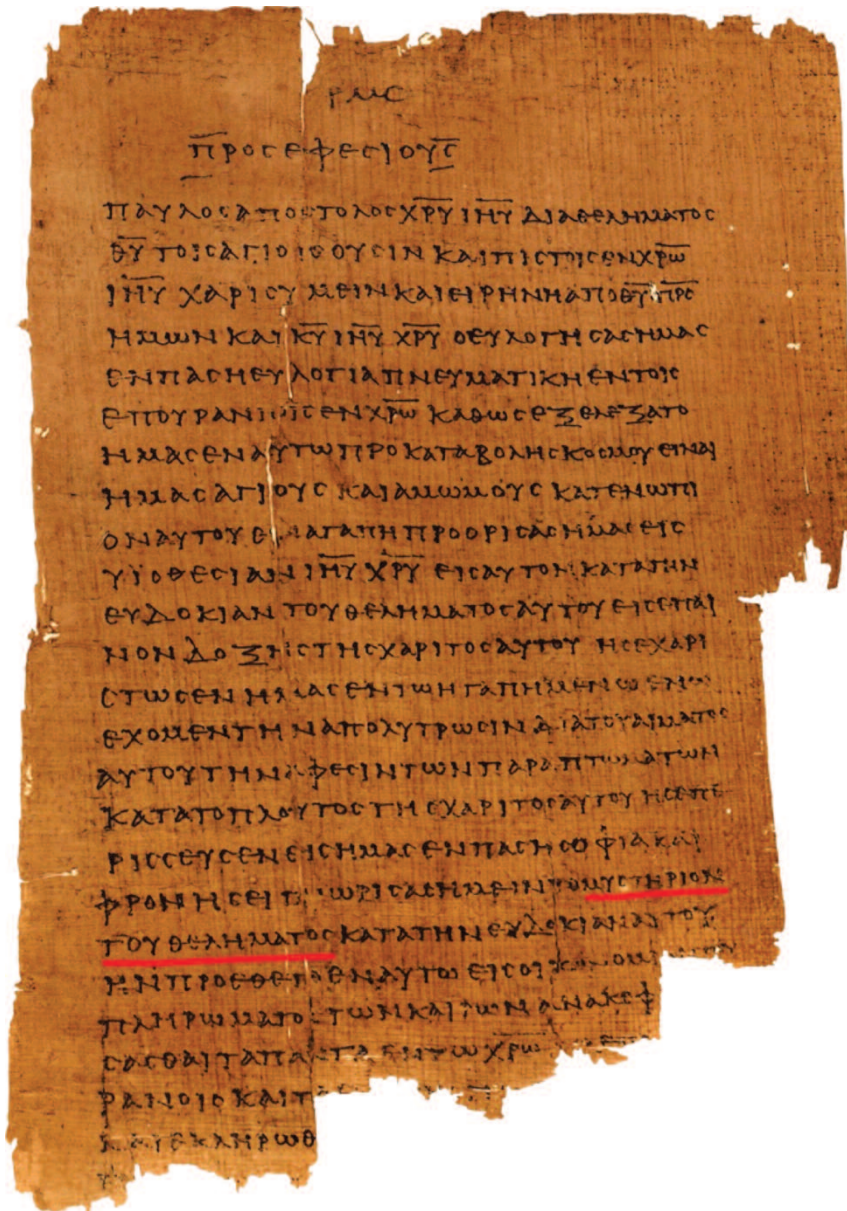 ΡΜϹ
Π̅ΡΟϹΕΦΕϹΙΟΥϹ̅
ΠΑΥΛΟϹΑΠΟϹΤΟΛΟϹΧ̅Ρ̅Υ̅ Ι̅Η̅Υ̅ ΔΙΑΘΕΛΗΜΑΤΟϹ
Θ̅Υ̅ ΤΟΙϹΑΓΙΟΙϹΟΥϹΙΝ ΚΑΙΠΙϹΤΟΙϹΕΝΧ̅Ρ̅Ω̅
Ι̅Η̅Υ̅ ΧΑΡΙϹΥΜΕΙΝΚΑΙΕΙΡΗΝΗΑΠΟΘ̅Υ̅Π̅Ρ̅Ϲ̅
ΗΜΩΝ ΚΑΙ Κ̅Υ̅ Ι̅Η̅Υ̅ Χ̅Ρ̅Υ̅ ΟΕΥΛΟΓΗϹΑϹΗΜΑϹ
ΕΝΠΑϹΗΕΥΛΟΓΙΑΠΝΕΥΜΑΤΙΚΗΕΝΤΟΙϹ
ΕΠΟΥΡΑΝΙΟΙϹΕΝΧ̅Ρ̅Ω̅ ΚΑΘΩϹΕΞΕΛΕΞΑΤΟ
ΗΜΑϹΕΝΑΥΤΩΠΡΟΚΑΤΑΒΟΛΗϹΚΟϹΜΟΥΕΙΝΑΙ
ΗΜΑϹΑΓΙΟΥϹ ΚΑΙΑΜΩΜΟΥϹ ΚΑΤΕΝΩΠΙ
ΟΝΑΥΤΟΥΕΝΑΓΑΠΗΠΡΟΟΡΙϹΑϹΗΜΑϹΕΙϹ
ΥΙΟΘΕϹΙΑΝ Ι̅Η̅Υ̅ Χ̅Ρ̅Υ̅ ΕΙϹΑΥΤΟΝΚΑΤΑΤΗΝ
ΕΥΔΟΚΙΑΝ ΤΟΥΘΕΛΗΜΑΤΟϹΑΥΤΟΥΕΙϹΕΠΑΙ
ΝΟΝΔΟΞΗϹΤΗϹΧΑΡΙΤΟϹΑΥΤΟΥ ΗϹΕΧΑΡΙ
ϹΤΩϹΕΝΗΜΑϹΕΝΤΩΗΓΑΠΗΜΕΝΩΕΝΩ
ΕΧΟΜΕΝΤΗΝΑΠΟΛΥΤΡΩϹΙΝΔΙΑΤΟΥΑΙΜΑΤΟϹ
ΑΥΤΟΥΤΗΝΑΦΕϹΙΝΤΩΝΠΑΡΑΠΤΩΜΑΤΩΝ
ΚΑΤΑΤΟΠΛΟΥΤΟϹΤΗϹΧΑΡΙΤΟϹΑΥΤΟΥΗϹΕΠΕ
ΡΙϹϹΕΥϹΕΝΕΙϹΗΜΑϹΕΝΠΑϹΗϹΟΦΙΑΚΑΙ
ΦΡΟΝΗϹΕΙ ΩΡΙϹΑϹΗΜΕΙΝΤΟΜΥϹΤΗΡΙΟΝ
ΤΟΥΘΕΛΗΜΑΤΟϹΚΑΤΑΤΗΝΕΥΔΟΚΙΑΝΑΥΤΟΥ
ΗΝΠΡΟΕΘΕΤΟΕΝΑΥΤΩΕΙϹΟΙΚΟΝΟΜΙ
ΠΛΗΡΩΜΑΤΟ ΤΩΝΚΑΙΡΩΝΑΝΑΚΕΦ
ϹΑϹΘΑΙΤΑΠΑ ΤΑΕΝΤΩΧ̅Ρ̅Ω̅
ΡΑΝΟΙϹ ΚΑΙΤ
ΚΑΙΕΚΛΗΡΩΘ